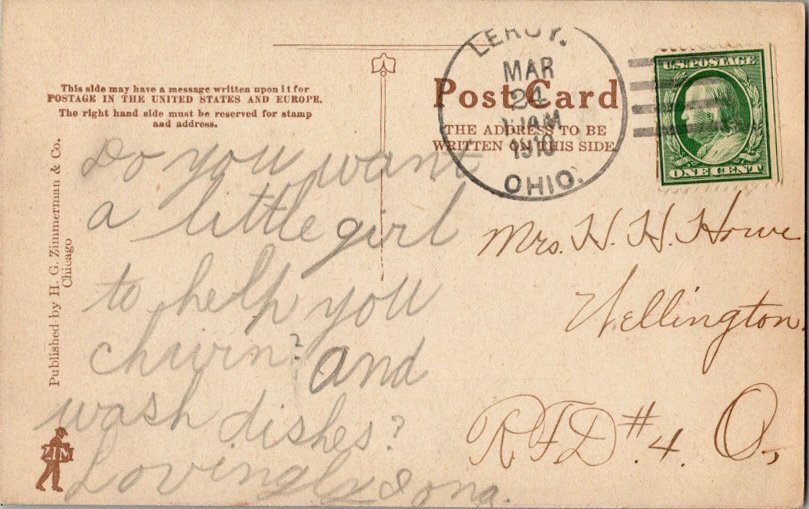 This side may have a message written upon it for
POSTAGE IN THE UNITED STATES AND EUROPE.
The right hand side must be reserved for stamp
and address.
Post Card
THE ADDRESS TO BE
WRITTEN ON THIS SIDE.
LEROY.
MAR
24
1910
OHIO.
U.S. POSTAGE
ONE CENT
Published by H. G. Zimmerman & Co.
Chicago
ZIM
Do you want
a little girl
to help you
churin? and
wash dishes?
Lovingly Iona.
Mrs. H. H. Howe
Wellington
RFD #4. O,